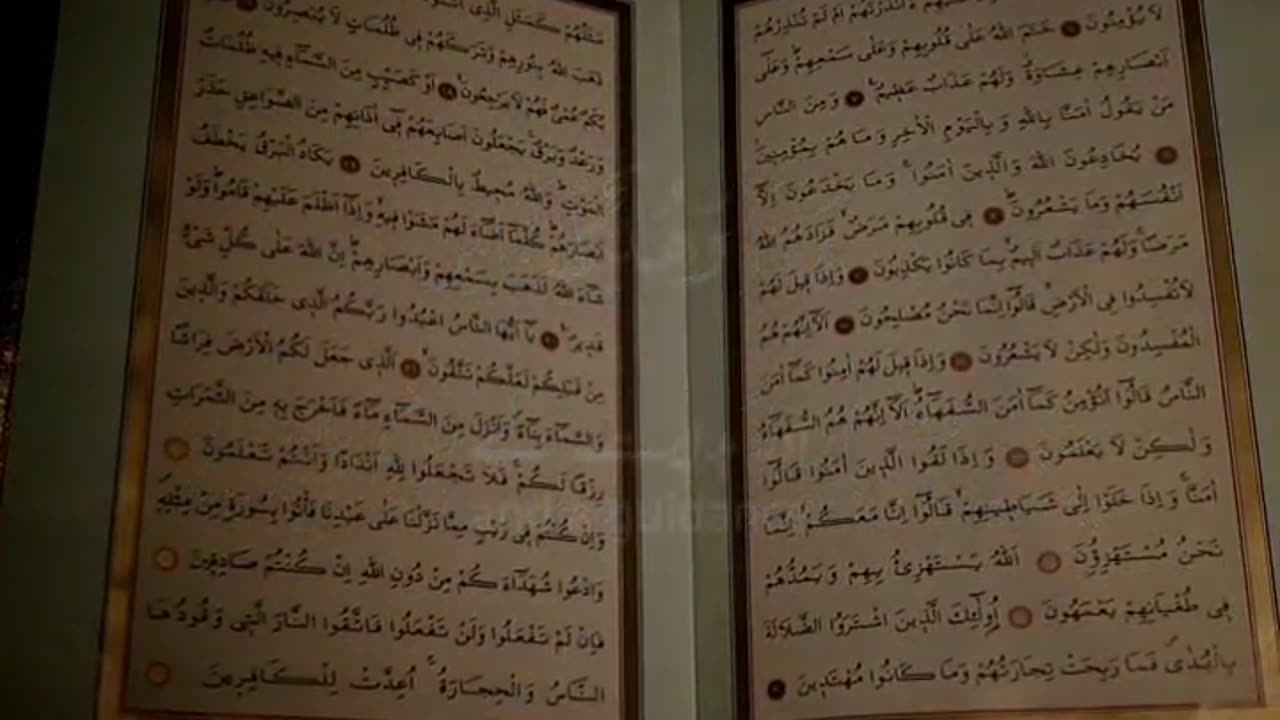 ءَاَنْذَرْتَهُمْ اَمْ لَمْ تُنْذِرْهُمْ
لَا يُؤْمِنُونَ ﴿٦﴾ خَتَمَ اللّٰهُ عَلٰى قُلُوبِهِمْ وَعَلٰى سَمْعِهِمْ وَعَلٰٓى
اَبْصَارِهِمْ غِشَاوَةٌ وَلَهُمْ عَذَابٌ عَظِيمٌ ﴿٧﴾ وَمِنَ النَّاسِ
مَنْ يَقُولُ اٰمَنَّا بِاللّٰهِ وَبِالْيَوْمِ الْاٰخِرِ وَمَا هُمْ بِمُؤْمِنِينَ
﴿٨﴾ يُخَادِعُونَ اللّٰهَ وَالَّذِينَ اٰمَنُوا وَمَا يَخْدَعُونَ اِلَّٓا
اَنْفُسَهُمْ وَمَا يَشْعُرُونَ ﴿٩﴾ فِي قُلُوبِهِمْ مَرَضٌ فَزَادَهُمُ اللّٰهُ
مَرَضًا وَلَهُمْ عَذَابٌ اَلِيمٌ بِمَا كَانُوا يَكْذِبُونَ ﴿١٠﴾ وَاِذَا قِيلَ لَهُمْ
لَا تُفْسِدُوا فِي الْاَرْضِ قَالُٓوا اِنَّمَا نَحْنُ مُصْلِحُونَ ﴿١١﴾ اَلَٓا اِنَّهُمْ هُمُ
الْمُفْسِدُونَ وَلٰكِنْ لَا يَشْعُرُونَ ﴿١٢﴾ وَاِذَا قِيلَ لَهُمْ اٰمِنُوا كَمَٓا اٰمَنَ
النَّاسُ قَالُٓوا اَنُؤْمِنُ كَمَٓا اٰمَنَ السُّفَهَٓاءُ اَلَٓا اِنَّهُمْ هُمُ السُّفَهَٓاءُ
وَلٰكِنْ لَا يَعْلَمُونَ ﴿١٣﴾ وَاِذَا لَقُوا الَّذِينَ اٰمَنُوا قَالُٓوا
اٰمَنَّا وَاِذَا خَلَوْا اِلٰى شَيَاطِينِهِمْ قَالُٓوا اِنَّا مَعَكُمْ اِنَّمَا
نَحْنُ مُسْتَهْزِؤُنَ ﴿١٤﴾ اَللّٰهُ يَسْتَهْزِئُ بِهِمْ وَيَمُدُّهُمْ
فِي طُغْيَانِهِمْ يَعْمَهُونَ ﴿١٥﴾ اُو۬لٰٓئِكَ الَّذِينَ اشْتَرَوُا الضَّلَالَةَ
بِالْهُدٰى فَمَا رَبِحَتْ تِجَارَتُهُمْ وَمَا كَانُوا مُهْتَدِينَ ﴿١٦﴾
مَثَلُهُمْ كَمَثَلِ الَّذِي
ذَهَبَ اللّٰهُ بِنُورِهِمْ وَتَرَكَهُمْ فِي ظُلُمَاتٍ لَا يُبْصِرُونَ ﴿١٧﴾
بُكْمٌ عُمْيٌ فَهُمْ لَا يَرْجِعُونَ ﴿١٨﴾ اَوْ كَصَيِّبٍ مِنَ السَّمَٓاءِ فِيهِ ظُلُمَاتٌ
وَرَعْدٌ وَبَرْقٌ يَجْعَلُونَ اَصَابِعَهُمْ فِٓي اٰذَانِهِمْ مِنَ الصَّوَاعِقِ حَذَرَ
الْمَوْتِ وَاللّٰهُ مُحِيطٌ بِالْكَافِرِينَ ﴿١٩﴾ يَكَادُ الْبَرْقُ يَخْطَفُ
اَبْصَارَهُمْ كُلَّمَٓا اَضَٓاءَ لَهُمْ مَشَوْا فِيهِ وَاِذَٓا اَظْلَمَ عَلَيْهِمْ قَامُوا وَلَوْ
شَٓاءَ اللّٰهُ لَذَهَبَ بِسَمْعِهِمْ وَاَبْصَارِهِمْ اِنَّ اللّٰهَ عَلٰى كُلِّ شَيْءٍ
قَدِيرٌ ﴿٢٠﴾ يَٓا اَيُّهَا النَّاسُ اعْبُدُوا رَبَّكُمُ الَّذِي خَلَقَكُمْ وَالَّذِينَ
مِنْ قَبْلِكُمْ لَعَلَّكُمْ تَتَّقُونَ ﴿٢١﴾ اَلَّذِي جَعَلَ لَكُمُ الْاَرْضَ فِرَاشًا
وَالسَّمَٓاءَ بِنَٓاءً وَاَنْزَلَ مِنَ السَّمَٓاءِ مَٓاءً فَاَخْرَجَ بِهِ مِنَ الثَّمَرَاتِ
رِزْقًا لَكُمْ فَلَا تَجْعَلُوا لِلّٰهِ اَنْدَادًا وَاَنْتُمْ تَعْلَمُونَ ﴿٢٢﴾
وَاِنْ كُنْتُمْ فِي رَيْبٍ مِمَّا نَزَّلْنَا عَلٰى عَبْدِنَا فَأْتُوا بِسُورَةٍ مِنْ مِثْلِهِ
وَادْعُوا شُهَدَٓاءَكُمْ مِنْ دُونِ اللّٰهِ اِنْ كُنْتُمْ صَادِقِينَ ﴿٢٣﴾
فَاِنْ لَمْ تَفْعَلُوا وَلَنْ تَفْعَلُوا فَاتَّقُوا النَّارَ الَّتِي وَقُودُهَا
النَّاسُ وَالْحِجَارَةُ اُعِدَّتْ لِلْكَافِرِينَ ﴿٢٤﴾